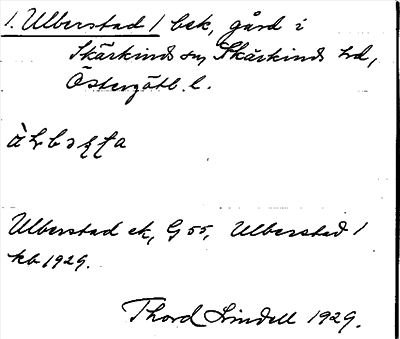 1. Ulberstad / bek, gård i
Skärkinds sn, Skärkinds hd,
Östergötl. l.
Ulberstad ek, G 55, Ulberstad /
kb 1929.
Thord Lindell 1929.